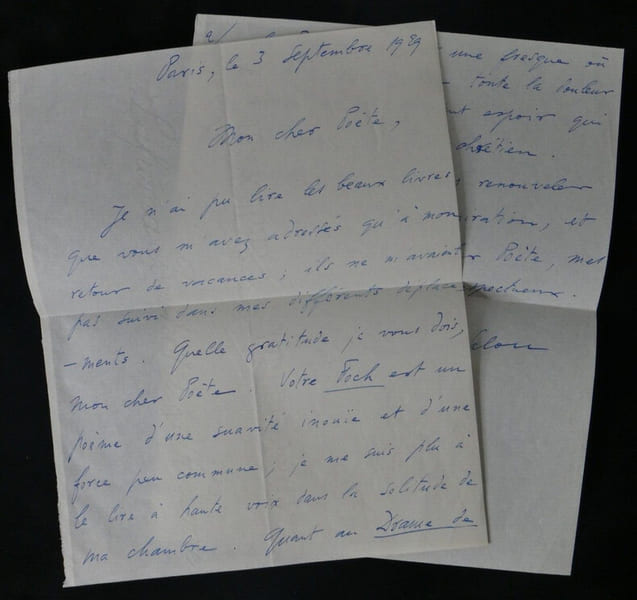 Paris, le 3 Septembre 1929
Mon cher Poète,
Je n'ai pu lire les beaux livres
que vous m'avez adressés qu'à mon
retour de vacances ; ils ne m'avaient
pas suivi dans mes différents déplace
-ments. Quelle gratitude je vous dois,
mon cher Poète. Votre Foch est un
poème d'une suavité inouïe et d'une
force peu commune ; je me suis plu à
le lire à haute voix dans la solitude de
ma chambre. Quant au Drame de
une fresque où
toute la douleur
espoir qui
chrétien.
renouveler
ration, et
Poète, mes
pectueux.